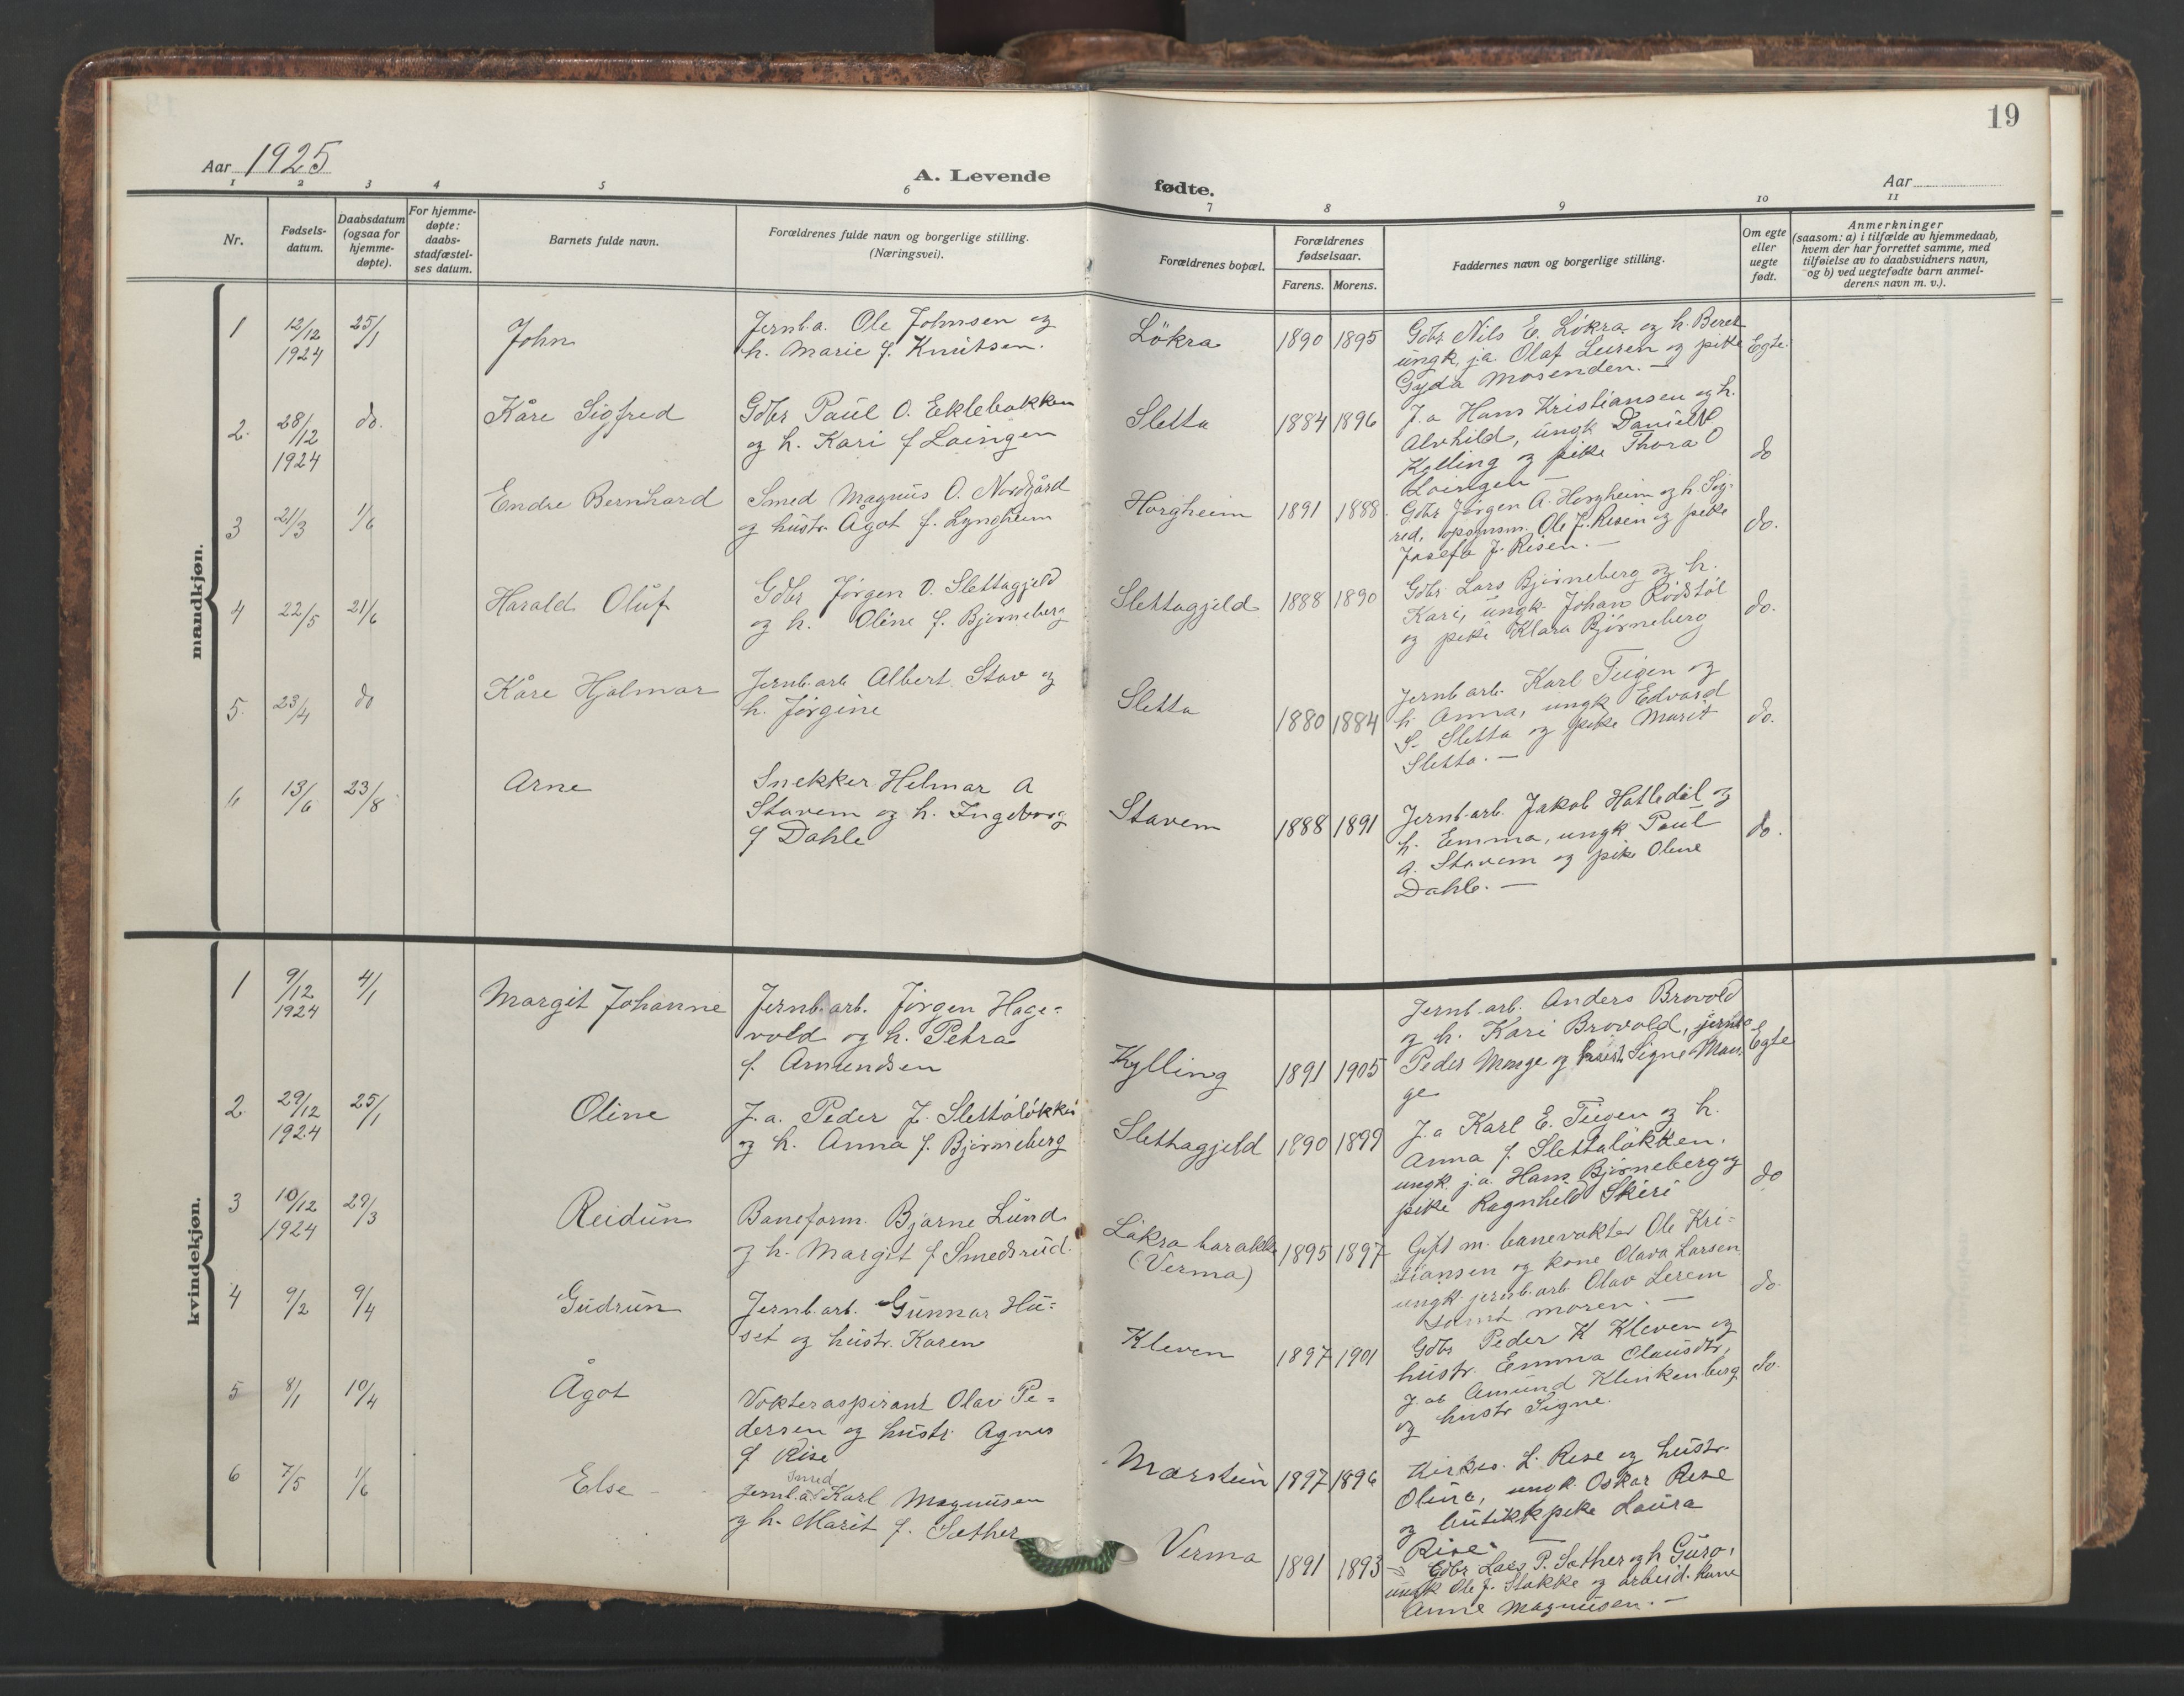 19
Aar 1925
A. Levende fødte.
Aar
1 2 3 4 5 6 7 8 9 10 11
Nr.
Fødsels-datum.
Daabsdatum (ogsaa for hjemme-døpte).
For hjemme-døpte: daabs-stadfæstel-ses datum.
Barnets fulde navn.
Forældrenes fulde navn og borgerlige stilling. (Næringsvei).
Forældrenes bopæl.
Forældrenes fødselsaar.
Farens. Morens.
Faddernes navn og borgerlige stilling.
Om egte eller uegte født.
Anmerkninger
(saasom: a) i tilfælde av hjemmedaab,
hvem der har forrettet samme, med
tilføielse av to daabsvidners navn,
og b) ved uegtefødte barn anmel-
derens navn m. v.).
mandkjøn.
1 12/12 1924 25/1 John
Jernb.a. Ole Johnsen og
h. Marie f. Knutsen.
Løkra 1890 1895
Gdbr Nils E. Løkra og h. Beret
ungk. j.a. Olaf Leiren og pike
Gyda Mosenden. —
Egte.
2. 28/12 1924 do. Kåre Sigfred
Gdbr Paul O. Eklebakken
og h. Kari f Loingen
Sletta 1884 1896
J.a Hans Kristiansen og h.
Alvhild, ungk Daniel
Kylling og pike Thora O
Loingen —
do
3 21/3 1/6 Endre Bernhard
Smed Magnus O. Nordgård
og hustr. Ågot f. Lyngheim
Horgheim 1891 1888
Gdbr Jørgen A. Horgheim og h. Sig-
red, opsynsm. Ole J. Risen og pike
Josefa J. Risen. —
do.
4 22/5 21/6 Harald Oluf
Gdbr Jørgen O. Slettagjeld
og h. Oline f. Bjørneberg
Slettagjeld 1888 1890
Gdbr. Lars Bjørneberg og h.
Kari, ungk. Johan Rødstøl
og pike Klara Bjørneberg
do.
5. 23/4 do Kåre Hjalmar
Jernb.arb Albert Stav og
h. Jørgine
Sletta 1880 1884
Jernb arb. Karl Teigen og
h. Anna, ungk Edvard
S. Sletta og pike Marit
Sletta. —
do.
6 13/6 23/8 Arne
Snekker Helmar A
Stavem og h. Ingeborg
f Dahle
Stavem 1888 1891
Jernb.arb. Jakob Hatledal og
h. Emma, ungk Paul
A. Stavem og pike Oline
Dahle. —
do.
kvindekjøn.
1 9/12 1924 4/1 Margit Johanne
Jernb.arb. Jørgen Hage-
vold og h. Petra
f. Amundsen
Kylling 1891 1905
Jernb.arb. Anders Brovold
og h. Kari Brovold, jernb a
Peder Monge og hustr. Signe Mon-
ge
Egte
2 29/12 1924 25/1 Oline
J.a. Peder J. Slettaløkken
og h. Anna f. Bjørneberg
Slettagjeld 1890 1899
J.a Karl E. Teigen og h.
Anna f. Slettaløkken.
ungk j.a. Hans Bjørneberg og
pike Ragnhild Skiri
do
3 10/12 1924 29/3 Reidun
Baneform. Bjarne Lund
og h. Margit f Smedsrud.
Løkra barakke
(Verma)
1895 1897
Gift m. banevokter Ole Kri-
stiansen og kone Olava Larsen
ungk. jernb.arb. Olav Lerem
samt moren. —
do.
4 9/2 9/4 Gudrun
Jernb.arb. Gunnar Hu-
set og hustr. Karen
Kleven 1897 1901
Gdbr Peder K Kleven og
hustr. Emma Olausdtr,
J.ab Amund Klinkenberg
og hustr Signe.
do.
5 8/1 10/4 Ågot
Vokteraspirant Olav Pe-
dersen og hustr Agnes
f Rise
Marstein 1897 1896
Kirkes. L. Rise og hustr.
Olina, ungk. Oskar Rise
og butikkpike Laura
Rise. —
6 7/5 1/6 Else
Smed
Jernb.a. Karl Magnusen
og h. Marit f. Sæther
Verma 1891 1893
Gdbr Lars P. Sæther og h Guro,
ungk Ole J. Stokke og arbeid. kone
Anne Magnusen. —